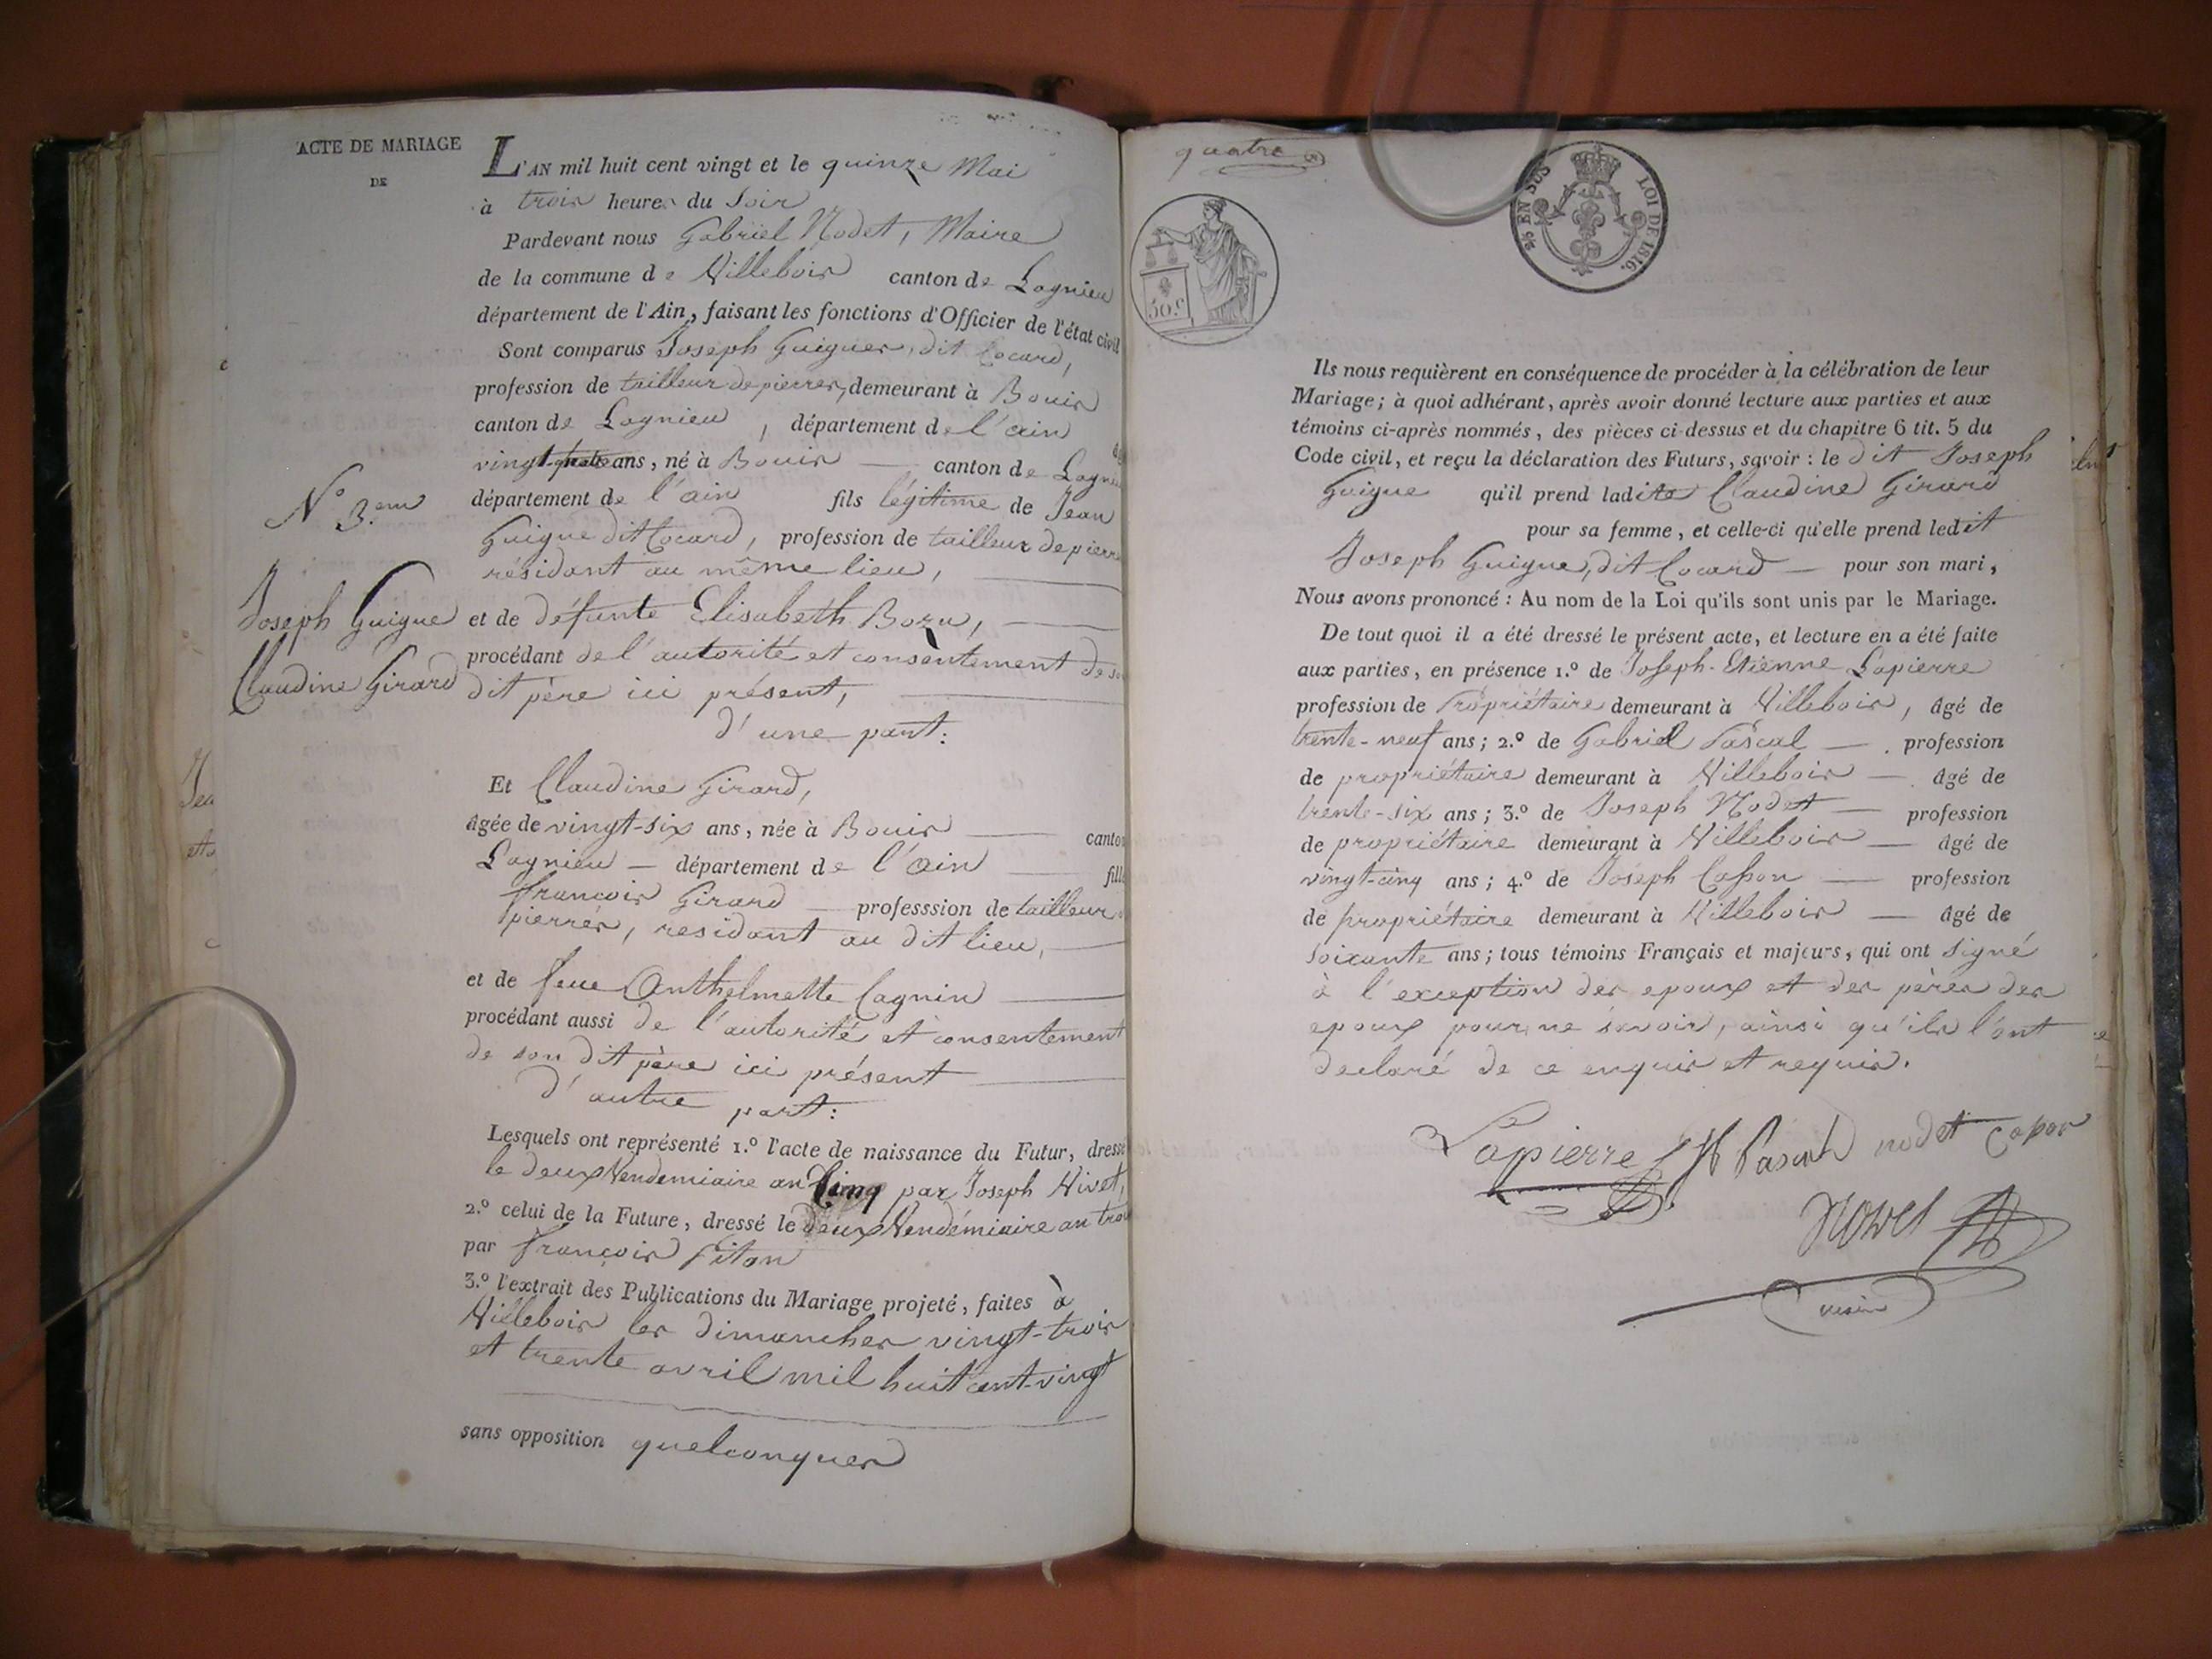 ACTE DE MARIAGE
DE
N.º 3.em
Joseph Guigue
Claudine Girard
L'AN mil huit cent vingt et le quinze Mai
à trois heures du Soir
Pardevant nous Gabriel Nodet, Maire
de la commune de Villebois canton de Lagnieu
département de l'Ain, faisant les fonctions d'Officier de l'état civil
Sont comparus Joseph Guigues, dit Cocard,
profession de tailleur de pierres, demeurant à Bouis
canton de Lagnieu, département de l'ain
vingt-quatre ans, né à Bouis — canton de Lagnieu
département de l'ain fils légitime de Jean
Guigue dit Cocard, profession de tailleur de pierre
résidant au même lieu,
et de défunte Elisabeth Bozu,
procédant de l'autorité et consentement de son
dit père ici présent,
d'une part:
Et Claudine Girard,
âgée de vingt-six ans, née à Bouis — canton
Lagnieu — département de l'ain — fille
françois Girard — professsion de tailleur
pierres, residant au dit lieu,
et de feue Anthelmette Cagnin
procédant aussi de l'autorité et consentement
de son dit père ici présent
d'autre part:
Lesquels ont représenté 1.º l'acte de naissance du Futur, dressé
le deux Vendemiaire an Cinq par Joseph Vivet,
2.º celui de la Future, dressé le deux Vendémiaire an trois
par françois Fiton
3.º l'extrait des Publications du Mariage projeté, faites à
Villebois les dimanches vingt-trois
et trente avril mil huit cent-vingt
sans opposition quelconques
quatre
50.c
EN SUS
LOI DE 1816.
Ils nous requièrent en conséquence de procéder à la célébration de leur
Mariage; à quoi adhérant, après avoir donné lecture aux parties et aux
témoins ci-après nommés, des pièces ci-dessus et du chapitre 6 tit. 5 du
Code civil, et reçu la déclaration des Futurs, savoir: le dit Joseph
Guigue qu'il prend ladite Claudine Girard
pour sa femme, et celle-ci qu'elle prend ledit
Joseph Guigue, dit Cocard — pour son mari,
Nous avons prononcé: Au nom de la Loi qu'ils sont unis par le Mariage.
De tout quoi il a été dressé le présent acte, et lecture en a été faite
aux parties, en présence 1.º de Joseph-Etienne Lapierre
profession de Propriétaire demeurant à Villebois, âgé de
trente-neuf ans; 2.º de Gabriel Pascal — profession
de propriétaire demeurant à Villebois — âgé de
trente-six ans; 3.º de Joseph Nodet — profession
de propriétaire demeurant à Villebois — âgé de
vingt-cinq ans; 4.º de Joseph Capon — profession
de propriétaire demeurant à Villebois — âgé de
soixante ans; tous témoins Français et majeurs, qui ont signé
à l'exception des epoux et des pères des
epoux pour ne savoir, ainsi qu'ils l'ont
declaré de ce enquis et requis.
Lapierre Pascal nodet Capon
Nodet